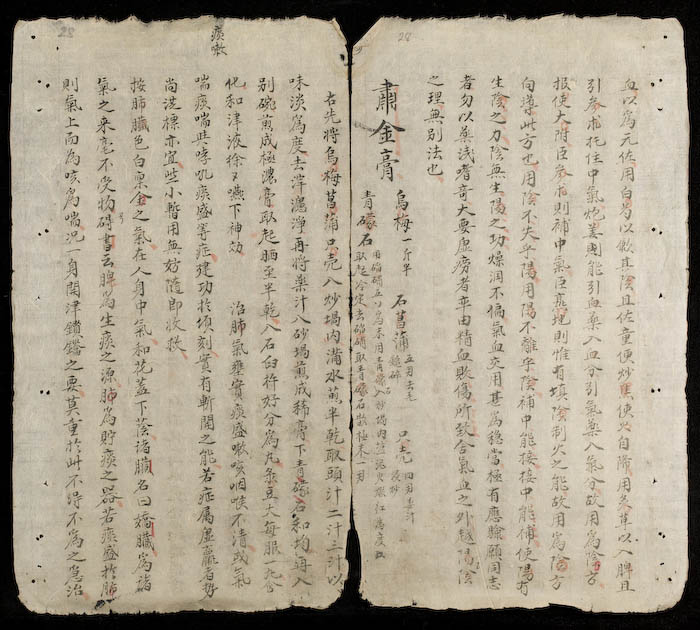 血以為元佐用白芍以歛真陰且佐童便炒黑使火自降用炙草以入脾且
引參朮托住中氣炮姜則能引血藥入血分引氣藥入氣分故用為陰方
報使大附臣參朮則補中氣臣熟地則惟有填陰制火之能故用為陰方
向導此方也用陰不失乎陽用陽不離乎陰補中能接接中能補使陽有
生陰之力陰無生陽之功燥潤不偏氣血交用甚為穩當極有應驗願同志
者勿以藥淺耆奇大要虛癆者率由精血敗傷所致舍氣血之外越陽陰
之理無別法也
肅金膏
烏梅一斤半 石菖蒲五刃去毛 䃃碎 只壳四刃去汁 麸炒
青礞石用焰硝五刃為末用青礞入砂堝內塩泥火煅紅為度
取起冷定去焰硝取青礞石散極末一刃
右先將烏梅菖蒲只壳入炒堝內滿水煎半乾取頭汁二汁三汁以
味淡為度去滓濾淨再將藥汁入砂堝煎成稀膏下青礞石和均再入
別碗煎成極濃膏取起晒至半乾入石臼杵好分為丸菉豆大每服一丸含
化和津液徐又嚥下神効 治肺氣壅實痰盛嗽咳咽喉不清或氣
喘痰喘哮吼痰盛等症建功於頃刻實有斬關之能若症屬虛羸者勢
尚洗標亦宜些小暫用無妨隨即收救
痰嗽
按肺臟色白稟金之氣在人身中氣和花蓋下蔭諸臟名曰嬌臟為諸
氣之來毫不受物碍書云脾為生痰之源肺為貯痰之器若痰盛於肺
則氣上而為咳為喘況一身関津鎖鑰之要莫重於此不得不為之急治
28
28